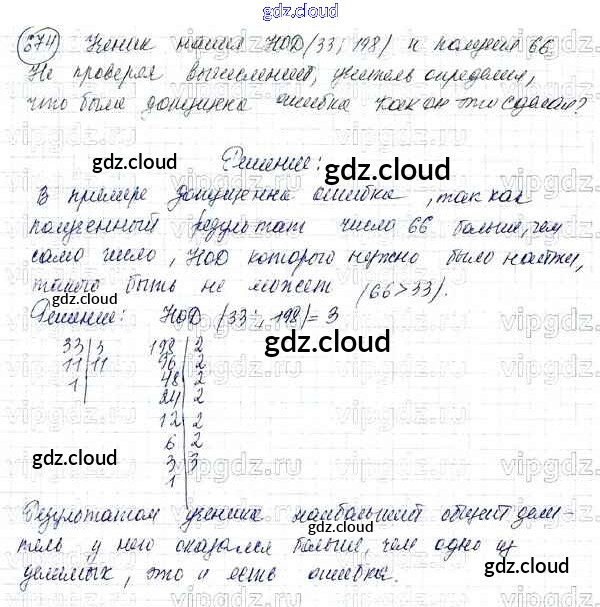 gdz.cloud
674 Ученик нашел НОД(33; 198) и получил 66.
Не проверяя вычислений, учитель определил,
что была допущенна ошибка. Как он это сделал?
gdz.cloud
Решение:
gdz.cloud
В примере допущенна ошибка, так как
полученный результат число 66 больше, чем
само число, НОД которого нужно было найти,
такого быть не может (66>33).
gdz.cloud
Решение: НОД (33; 198)=3
gdz.cloud
33|3 198|2
11|11 96|2
1| 48|2
24|2
12|2
6|2
3|3
1|
gdz.cloud
gdz.cloud
vipgdz.ru
Результатом ученика наибольший общий дели-
тель у него оказался больше, чем одно из
делимых, это и есть ошибка.
gdz.cloud